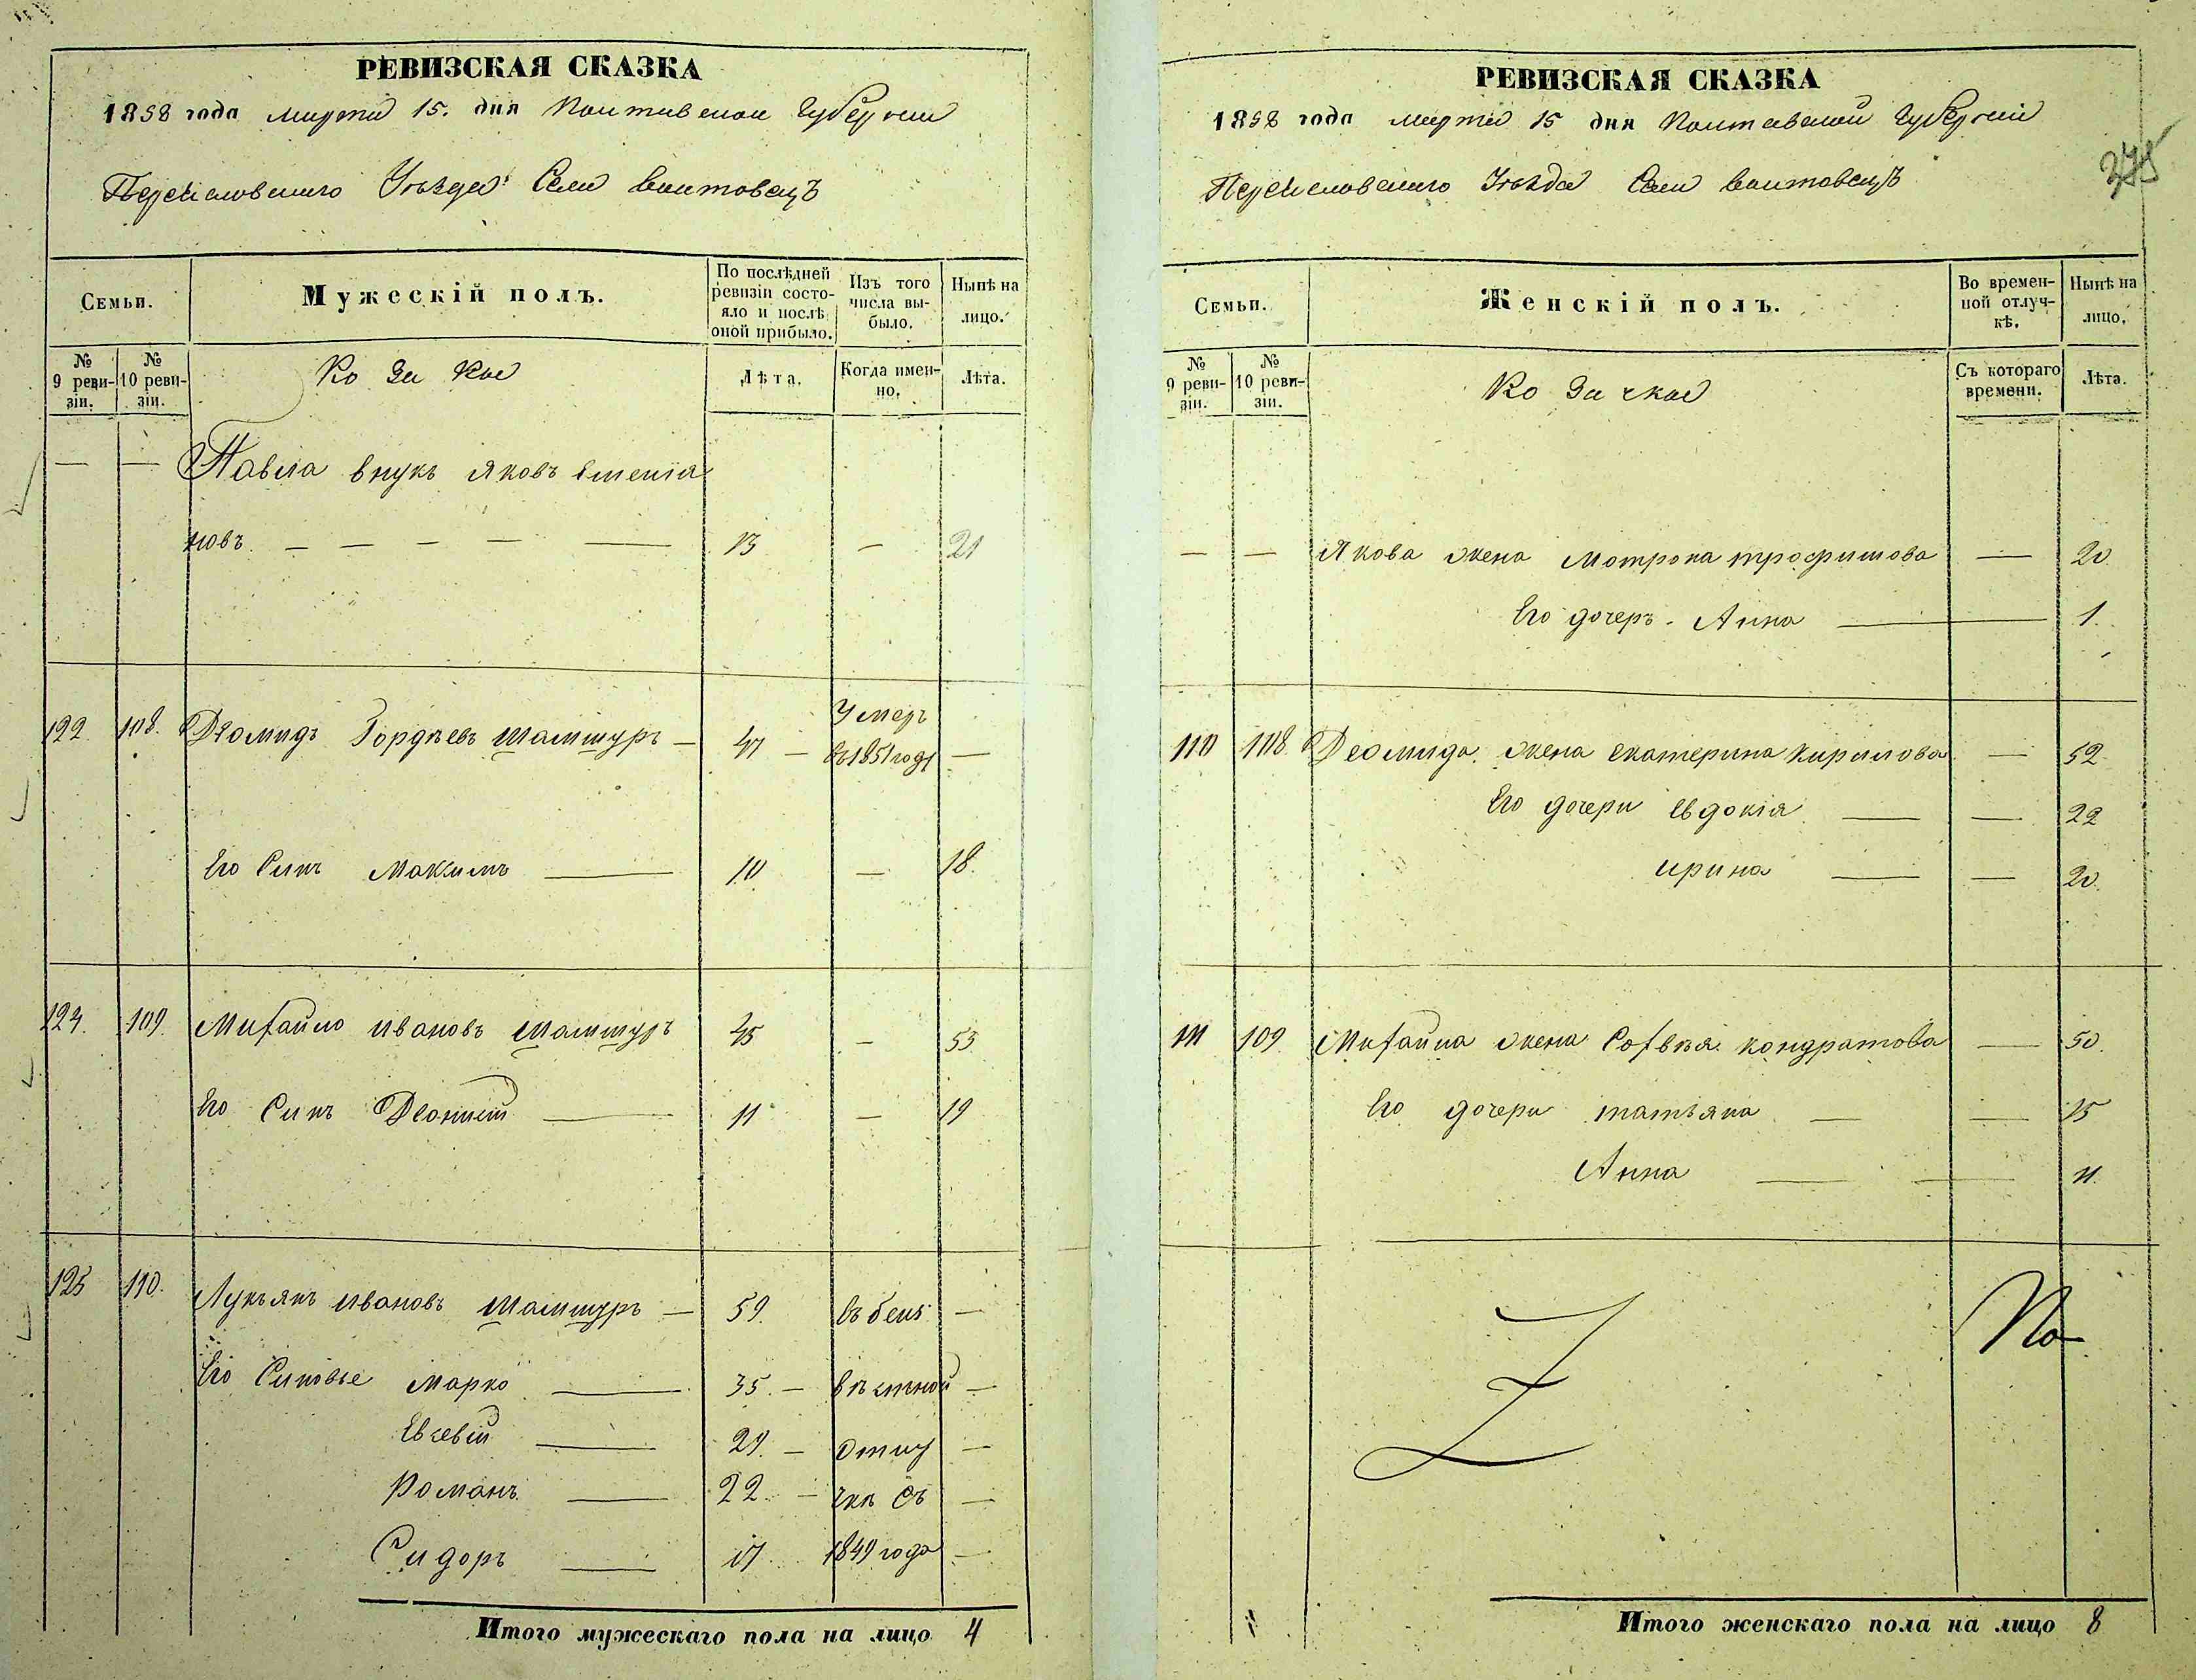 РЕВИЗСКАЯ СКАЗКА
1858 года марта 15. дня Полтавской Губернии
Переяславскаго Уѣзда Села Войтовецъ
Семьи.
Мужескій полъ.
По послѣдней ревизіи состояло и послѣ оной прибыло.
Изъ того числа выбыло.
Нынѣ на лицо.
№ 9 ревизіи.
№ 10 ревизіи.
Козаки
Лѣта.
Когда именно.
Лѣта.
— — Павла внукъ Яковъ
новъ — — — — — 13 — 21
122. 108. Деомидъ Гордѣевъ Шамшуръ — 47 — Умеръ
въ 1851 году —
Его Синъ Максимъ — 10 — 18.
124. 109. Михайло Ивановъ Шамшуръ 45 — 53
Его Синъ Деонисій — 11 — 19
125 110. Лукьянъ Ивановъ Шамшуръ — 59. въ безъ —
Его Синовье Марко — 35. — вѣстной —
Евсевій — 29. — отлу —
Романъ — 22. — чкѣ съ —
Сидоръ — 17. 1849 года —
Итого мужескаго пола на лицо 4
РЕВИЗСКАЯ СКАЗКА
1858 года марта 15 дня Полтавской Губерніи
Переяславскаго Уѣзда Села Войтовецъ
Семьи.
Женскій полъ.
Во временной отлучкѣ.
Нынѣ на лицо.
№ 9 ревизіи.
№ 10 ревизіи.
Козачки
Съ котораго времени.
Лѣта.
— — Якова жена Мотрона Трофимова — 20
Его дочеръ Анна — 1.
110 108. Деомида жена Екатерина Кирилова — 52
Его дочери Евдокія — — 22
Ирина — — 20.
111 109 Михайла жена Софія Кондратова — 50.
Его дочери Татьяна — — 15
Анна — — 11.
Итого женскаго пола на лицо 8